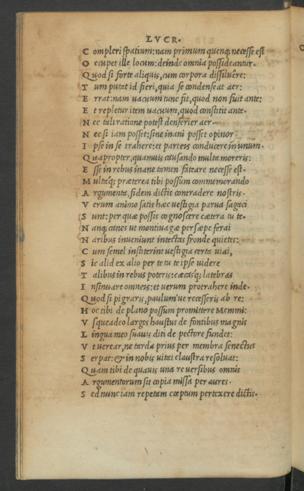 LVCR.
C ompleri spatium: nam primum quenq; necesse est
O ccupet ille locum: deinde omnia possideantur.
Q uod si forte aliquis, cum corpora dissiluere:
T um putat id fieri, quia se condenseat aer:
E rrat: nam uacuum tunc fit, quod non fuit ante:
E t repletur item uacuum, quod constitit ante.
N ec tali ratione potest denserier aer.
N ec si iam posset: sine inani posset opinor
I pse in se trahere: et parteis conducere in unum.
Q uapropter, quamuis causando multa moreris:
E sse in rebus inane tamen fateare necesse est.
M ultaq; præterea tibi possum commemorando
A rgumenta, fidem dictis conradere nostris.
V erum animo satis hæc uestigia parua sagaci
S unt: per quæ possis cognoscere cætera tu te.
N anq; canes ut montiuagæ persæpe ferai
N aribus inueniunt intectas fronde quietes:
C um semel institerint uestigia certa uiai,
S ic alid ex alio per te tu te ipse uidere
T alibus in rebus poteris: cæcasq; latebras
I nsinuare omneis: et uerum protrahere inde.
Q uod si pigraris, paulum'ue recesseris ab re:
H oc tibi de plano possum promittere Memmi:
V sque adeo largos haustus de fontibus magnis
L ingua meo suauis diti de pectore fundet:
V t uerear, ne tarda prius per membra senectus
S erpat: & in nobis uitæ claustra resoluat:
Q uam tibi de quauis una re uersibus omnis
A rgumentorum sit copia missa per aures.
S ed nunc iam repetam cœptum pertexere dictis.